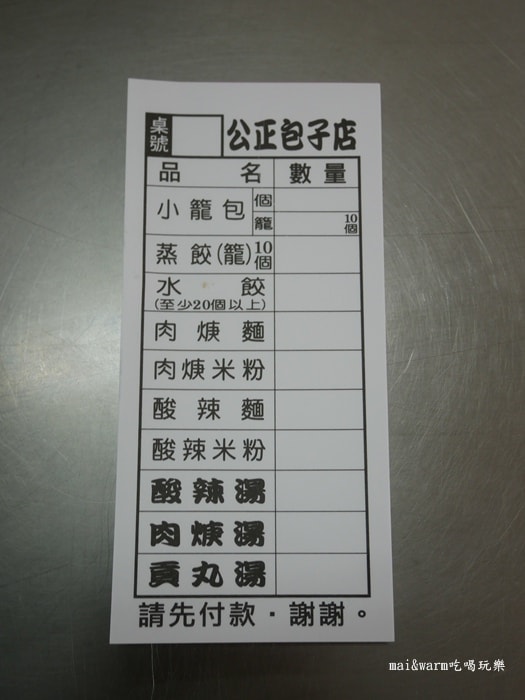 桌號 公正包子店
品名 數量
小籠包 個
籠 10個
蒸餃(籠)10個
水餃
(至少20個以上)
肉焿麵
肉焿米粉
酸辣麵
酸辣米粉
酸辣湯
肉焿湯
貢丸湯
請先付款·謝謝。
mai&warm吃喝玩樂